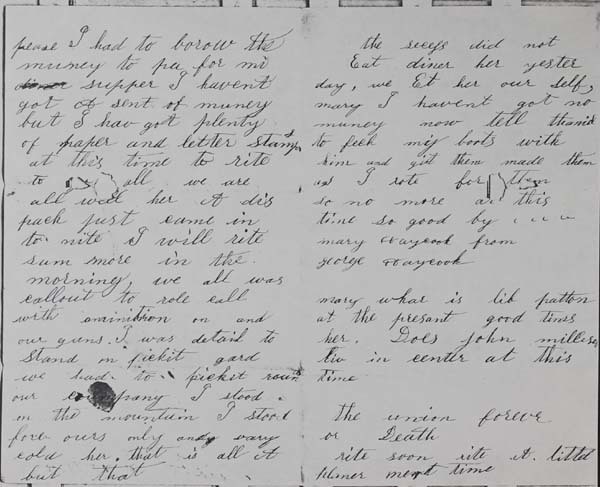 pease I had to borow the
muney to pa for mi
supper I havent
got A sent of muney
but I hav got plenty
of paper and letter stamps
at this time to rite
to all we are
all well her A dis
pach just came in
to nite I will rite
sum more in the
morning, we all was
callout to role call
with on and
our guns. I was detail to
stand on picket gard
we had to picket round
our company I stood
on the mountain I stood
fore ours only and vary
cold her. that is all it
but that
the seceSs did not
Eat diner her yester
day, we Et her our self,
mary I havent got no
muney now tell
to my boots with
him and git them made them
as I rote for them
so no more at this
time so good by
mary Haycook from
george Haycook
mary whar is lib patton
at the presant good times
her. Does john
liv in center at this
time
the union forevr
or Death
rite soon rite A little
planer next time